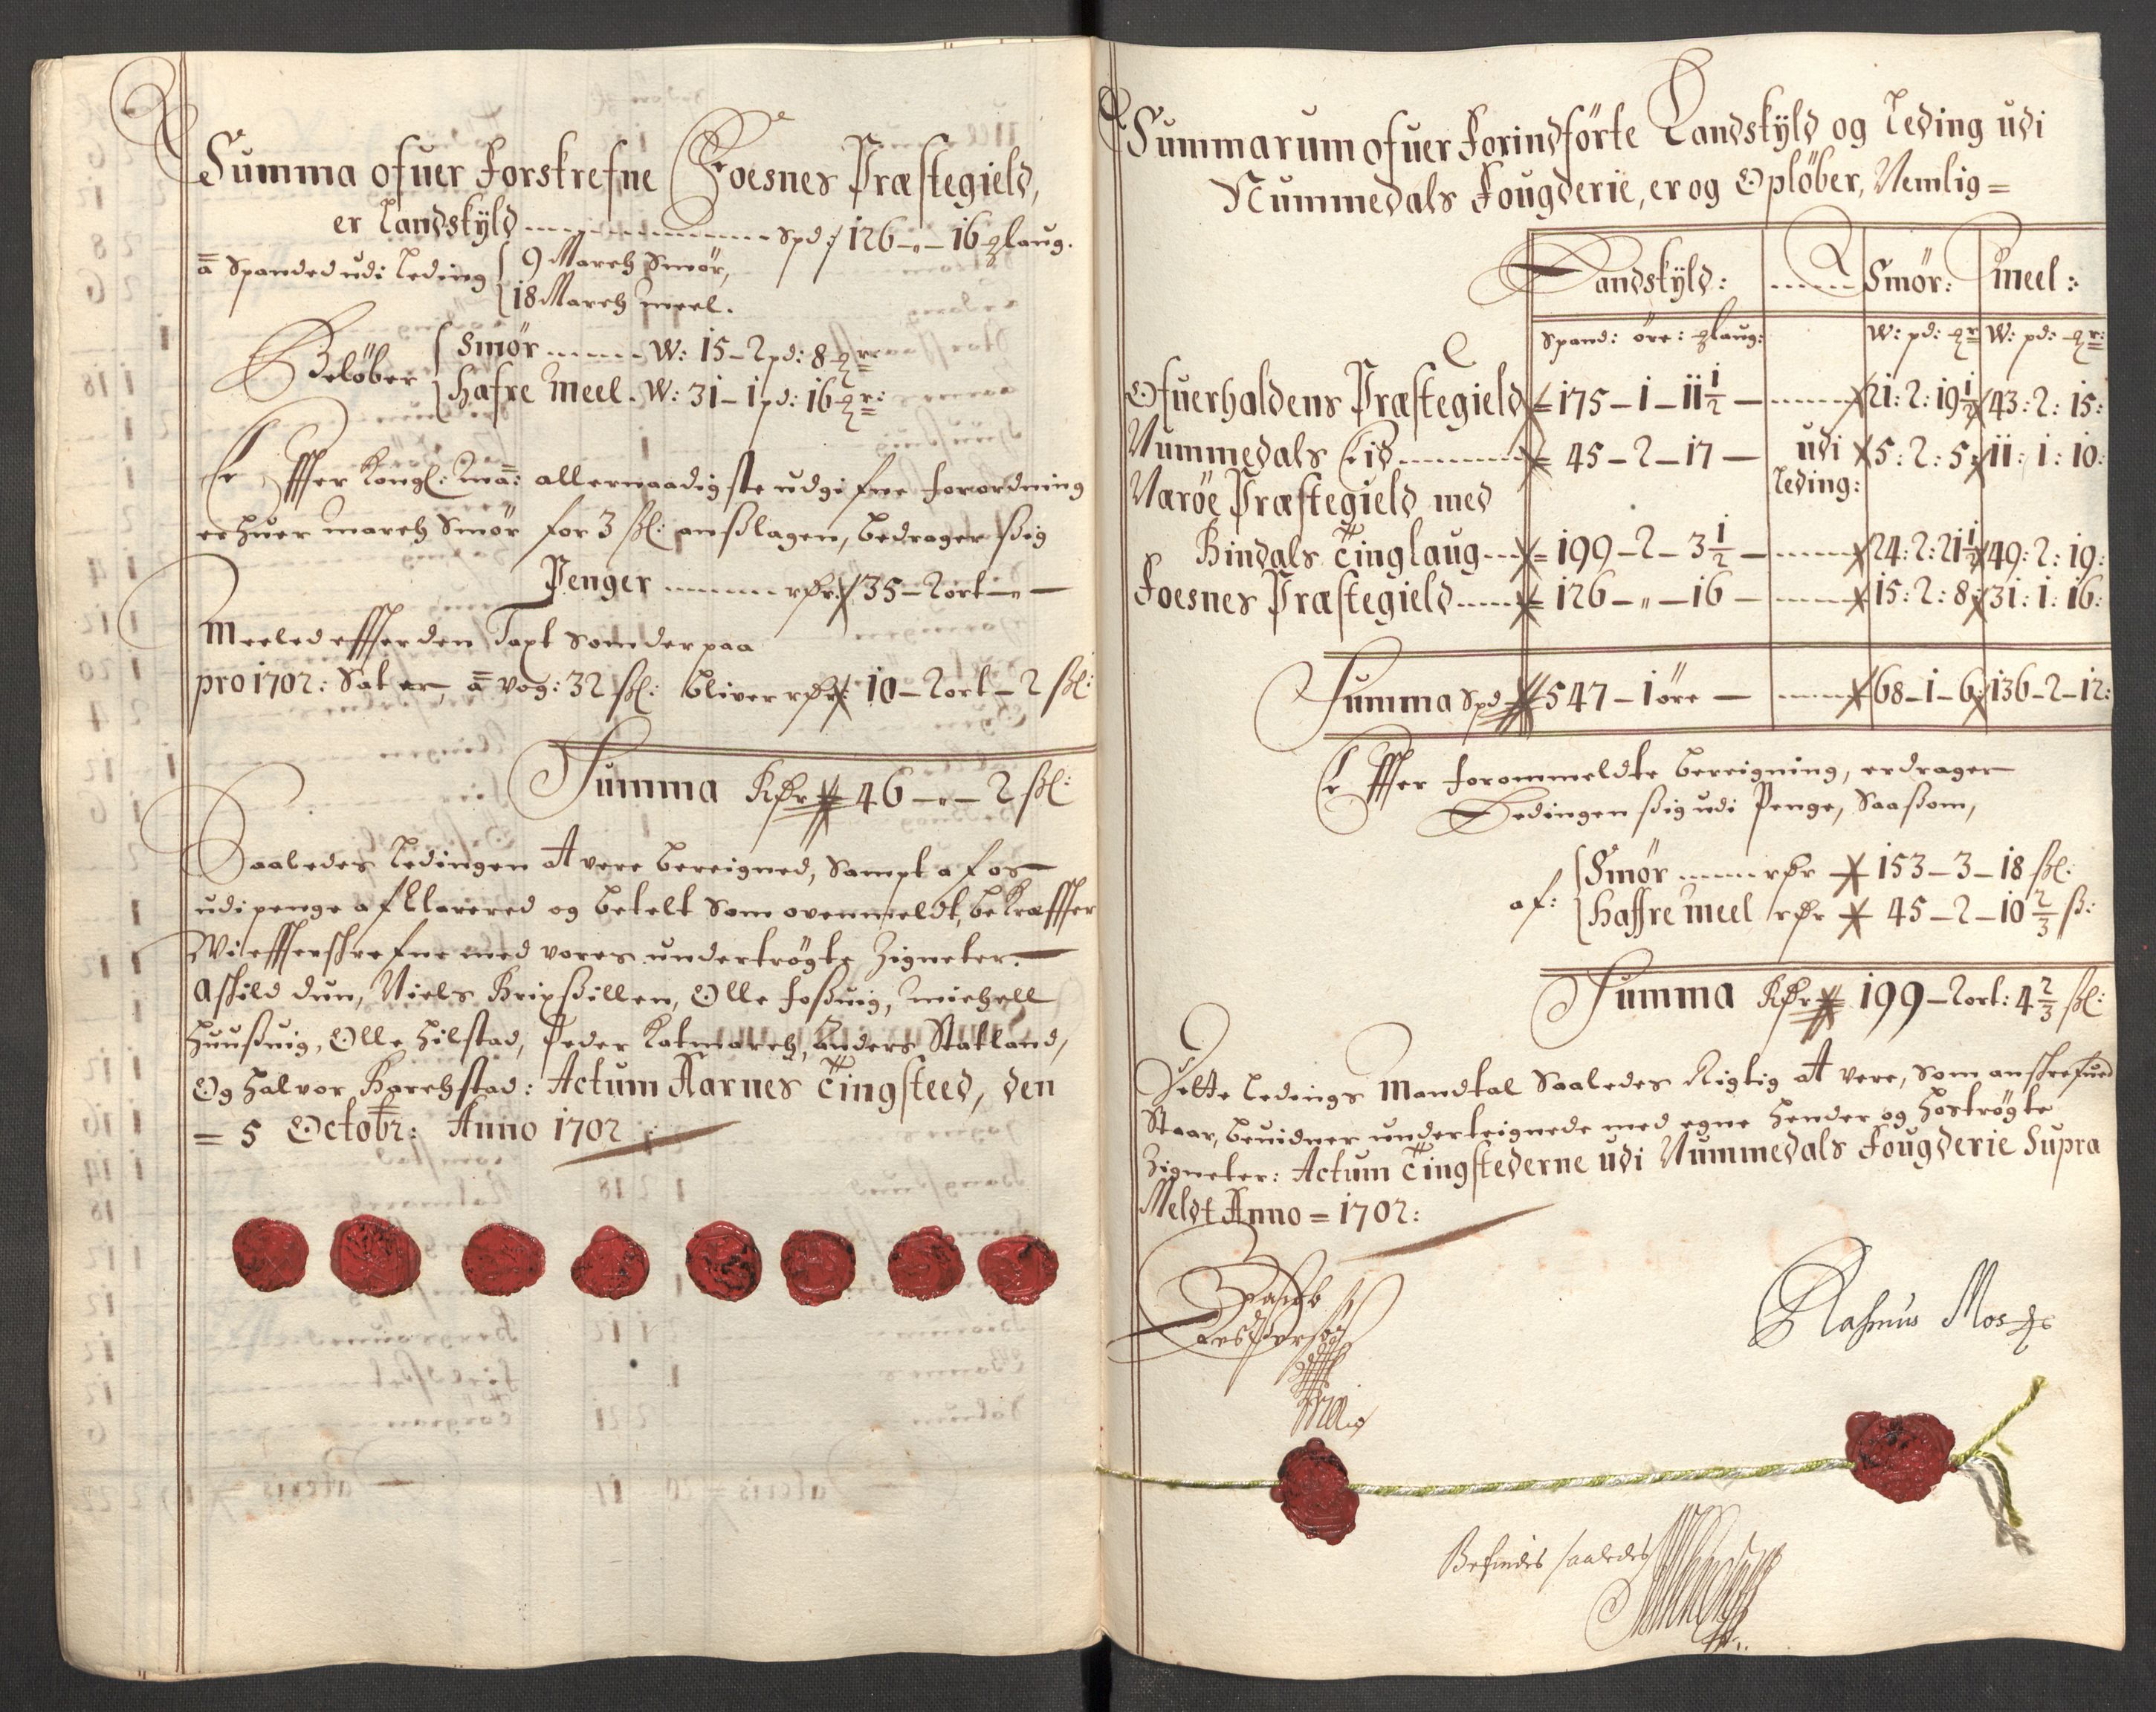 Summa ofuer Forskrefne Foesnes Præstegield,
er Landskÿld ........ Spd: 126 - „ - 16 ₰laug.
ā Spanded udi Leding { 9 March Smör,
18 March meel.
Beløber { Smör ...... W: 15 - 2 pd: 8 ₰r:
Hafre Meel. W: 31 - 1 pd: 16 ₰r:
Effter Kongl: Ma: allernaadigste udgifne forordning
er huer march Smör for 3 ßl: anßlagen, bedrager ßig
Penger ....... rdr: 35 - 2 ort - „ -
Meeled effter den Taxt Som der paa
pro 1702: Sat er, ā vog: 32 ßl: bliver rdr: 10 - 2 ort - 2 ßl:
Summa Rdr 46 - „ - 2 ßl:
Saaledes Ledingen At vere bereigned, Sampt af os
udi penge afklarered og betelt Som ovenmeldt, bekræffter
Wi effterskrefne med vores undertrögte Zigneter.
Askild dun, Niels Kripßillen, Olle foßuig, michell
Huußuig, Olle Hilstad, Peder Katmarch, Anders Statland,
Og Halvor Barchstad: Actum Aarnes Tingsteed, den
= 5 Octobr: Anno 1702
Summarum ofuer Forindförte Landskÿld og Leding udi
Nummedals Fougderie, er og Opløber, Nemlig =
Landskÿld: Smör: Meel:
Spand: öre: ₰laug: W: pd: ₰r W: pd: ₰r:
Ofuerhaldens Præstegield = 175 - 1 - 11 1/2 - ...... 21: 2: 19 1/2 43: 2: 15:
Nummedals Eid ........ = 45 - 2 - 17 - udi 5: 2: 5: 11: 1: 10:
Leding:
Nærøe Præstegield med
Bindals Tinglaug ... = 199 - 2 - 3 1/2 - ...... 24: 2: 21 1/2 49: 2: 19:
Foesnes Præstegield ..... = 126 - „ - 16 - ...... 15: 2: 8: 31: 1: 16:
Summa Spd 547 - 1 öre - ...... 68 - 1 - 6: 136 - 2 - 12:
Effter forommeldte bereigning, erdrager
Ledingen ßig udi Penge, Saaßom,
af: { Smör ...... rdr 153 - 3 - 18 ßl:
Haffre meel rdr 45 - 2 - 10 2/3 ß:
Summa Rdr 199 - 2 ort: 4 2/3 ßl:
Dette Ledings Mandtal Saaledes Rigtig At vere, Som anskrefued
Staar, beuidner underteignede med egne Hender og hoströgte
Zigneter: Actum Tingstederne udi Nummedals Fougderie Supra
Meldt Anno = 1702:
Rasmus
Befindes saaledes